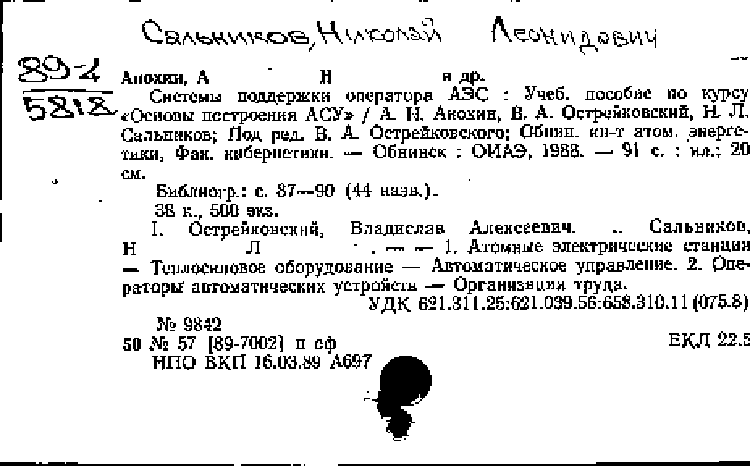 Сальников, Николай Леонидович
89-2
5818
Анохин, А Н и др.
Системы поддержки оператора АЭС : Учеб. пособие по курсу
«Основы построения АСУ» / А. Н. Анохин, В. А. Острейковский, Н. Л.
Сальников; Под ред. В. А. Острейковского; Обнин. ин-т атом. энерге-
тики, Фак. кибернетики. — Обнинск : ОИАЭ, 1988. — 91 с. : ил.; 20
см.
Библиогр.: с. 87—90 (44 назв.).
38 к., 500 экз.
I. Острейковский, Владислав Алексеевич. .. Сальников,
Н Л . — — 1. Атомные электрические станции
— Теплосиловое оборудование — Автоматическое управление. 2. Опе-
раторы автоматических устройств — Организация труда.
УДК 621.311.25:621.039.56:658.310.11(075.8)
№ 9842
50 № 57 [89-7002] п сф
НПО ВКП 16.03.89 А697
ЕКЛ 22.5